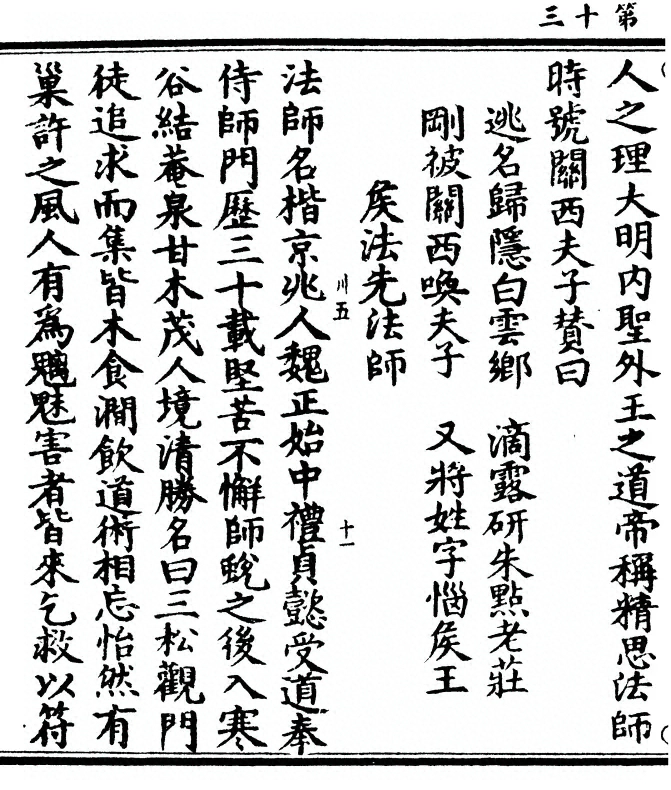 第十三
人之理大明内聖外王之道帝稱精思法師
時號關西夫子賛曰
逃名歸隱白雲鄉　滴露研朱點老莊
剛被關西喚夫子　又將姓字惱侯王
侯法先法師
川五
十一
法師名楷京兆人魏正始中禮貞懿受道奉
侍師門歷三十載堅苦不懈師蛻之後入寒
谷結菴泉甘木茂人境清勝名曰三松觀門
徒追求而集皆木食澗飲道術相忘怡然有
巢許之風人有爲魑魅害者皆來乞救以符